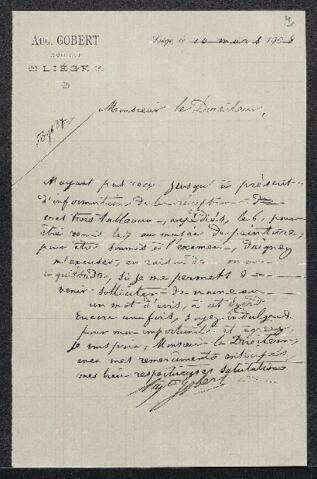 AUG. GOBERT
LIÉGE
Liége, le 10 mars 190
Monsieur le Directeur,
N'ayant pas reçu jusqu'à présent
d'information de la réception de
mes trois tableaux, expédiés, le 6, pour
être remis le 7 au musée de peinture,
pour être soumis à l'examen, daignez
m'excuser, en raison de mon
inquiétude, si je me permets de
venir solliciter de nouveau
un mot d'avis, à cet égard.
Encore une fois, soyez indulgent
pour mon importunité et agréez,
je vous prie, Monsieur le Directeur,
avec mes remerciements anticipés,
mes bien respectueuses salutations
Aug. Gobert